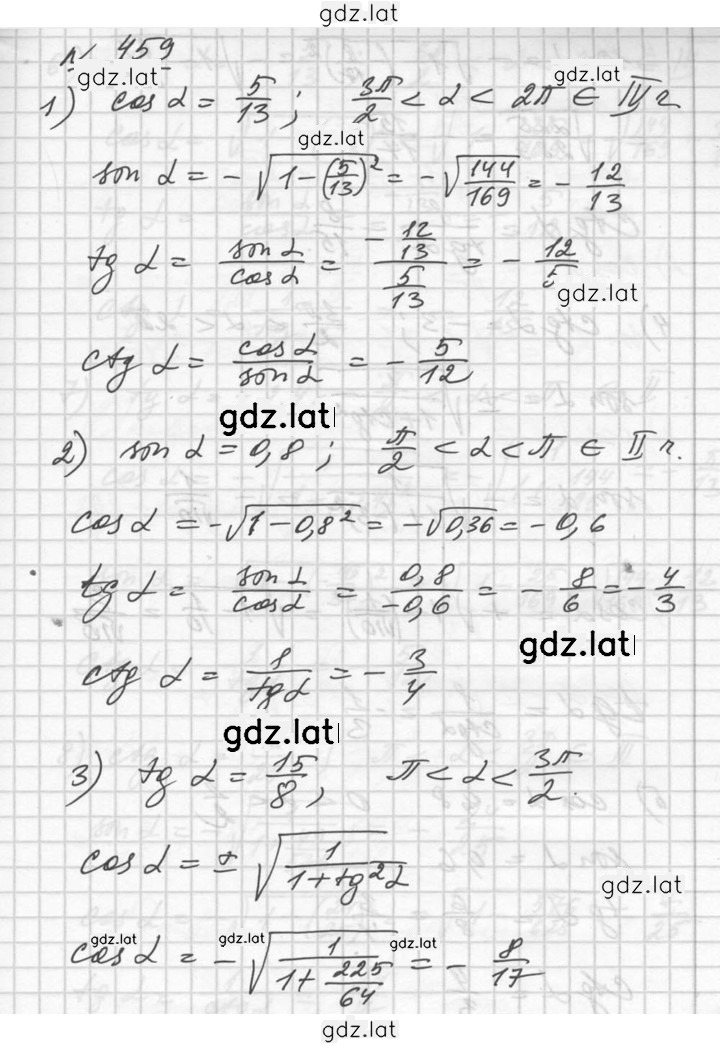 gdz.lat
№ 459
gdz.lat gdz.lat
1) cos α = 5/13 ; 3π/2 < α < 2π ∈ IV ч.
gdz.lat
sin α = -√(1-(5/13)²) = -√(144/169) = - 12/13
tg α = sin α/cos α = (-12/13)/(5/13) = - 12/5
gdz.lat
ctg α = cos α/sin α = - 5/12
gdz.lat
2) sin α = 0,8 ; π/2 < α < π ∈ II ч.
cos α = -√(1-0,8²) = -√0,36 = -0,6
tg α = sin α/cos α = 0,8/-0,6 = - 8/6 = - 4/3
gdz.lat
ctg α = 1/tg α = - 3/4
gdz.lat
3) tg α = 15/8 , π < α < 3π/2.
cos α = ± √(1/(1+tg²α))
gdz.lat
gdz.lat gdz.lat gdz.lat
cos α = -√(1/(1+225/64)) = - 8/17
gdz.lat